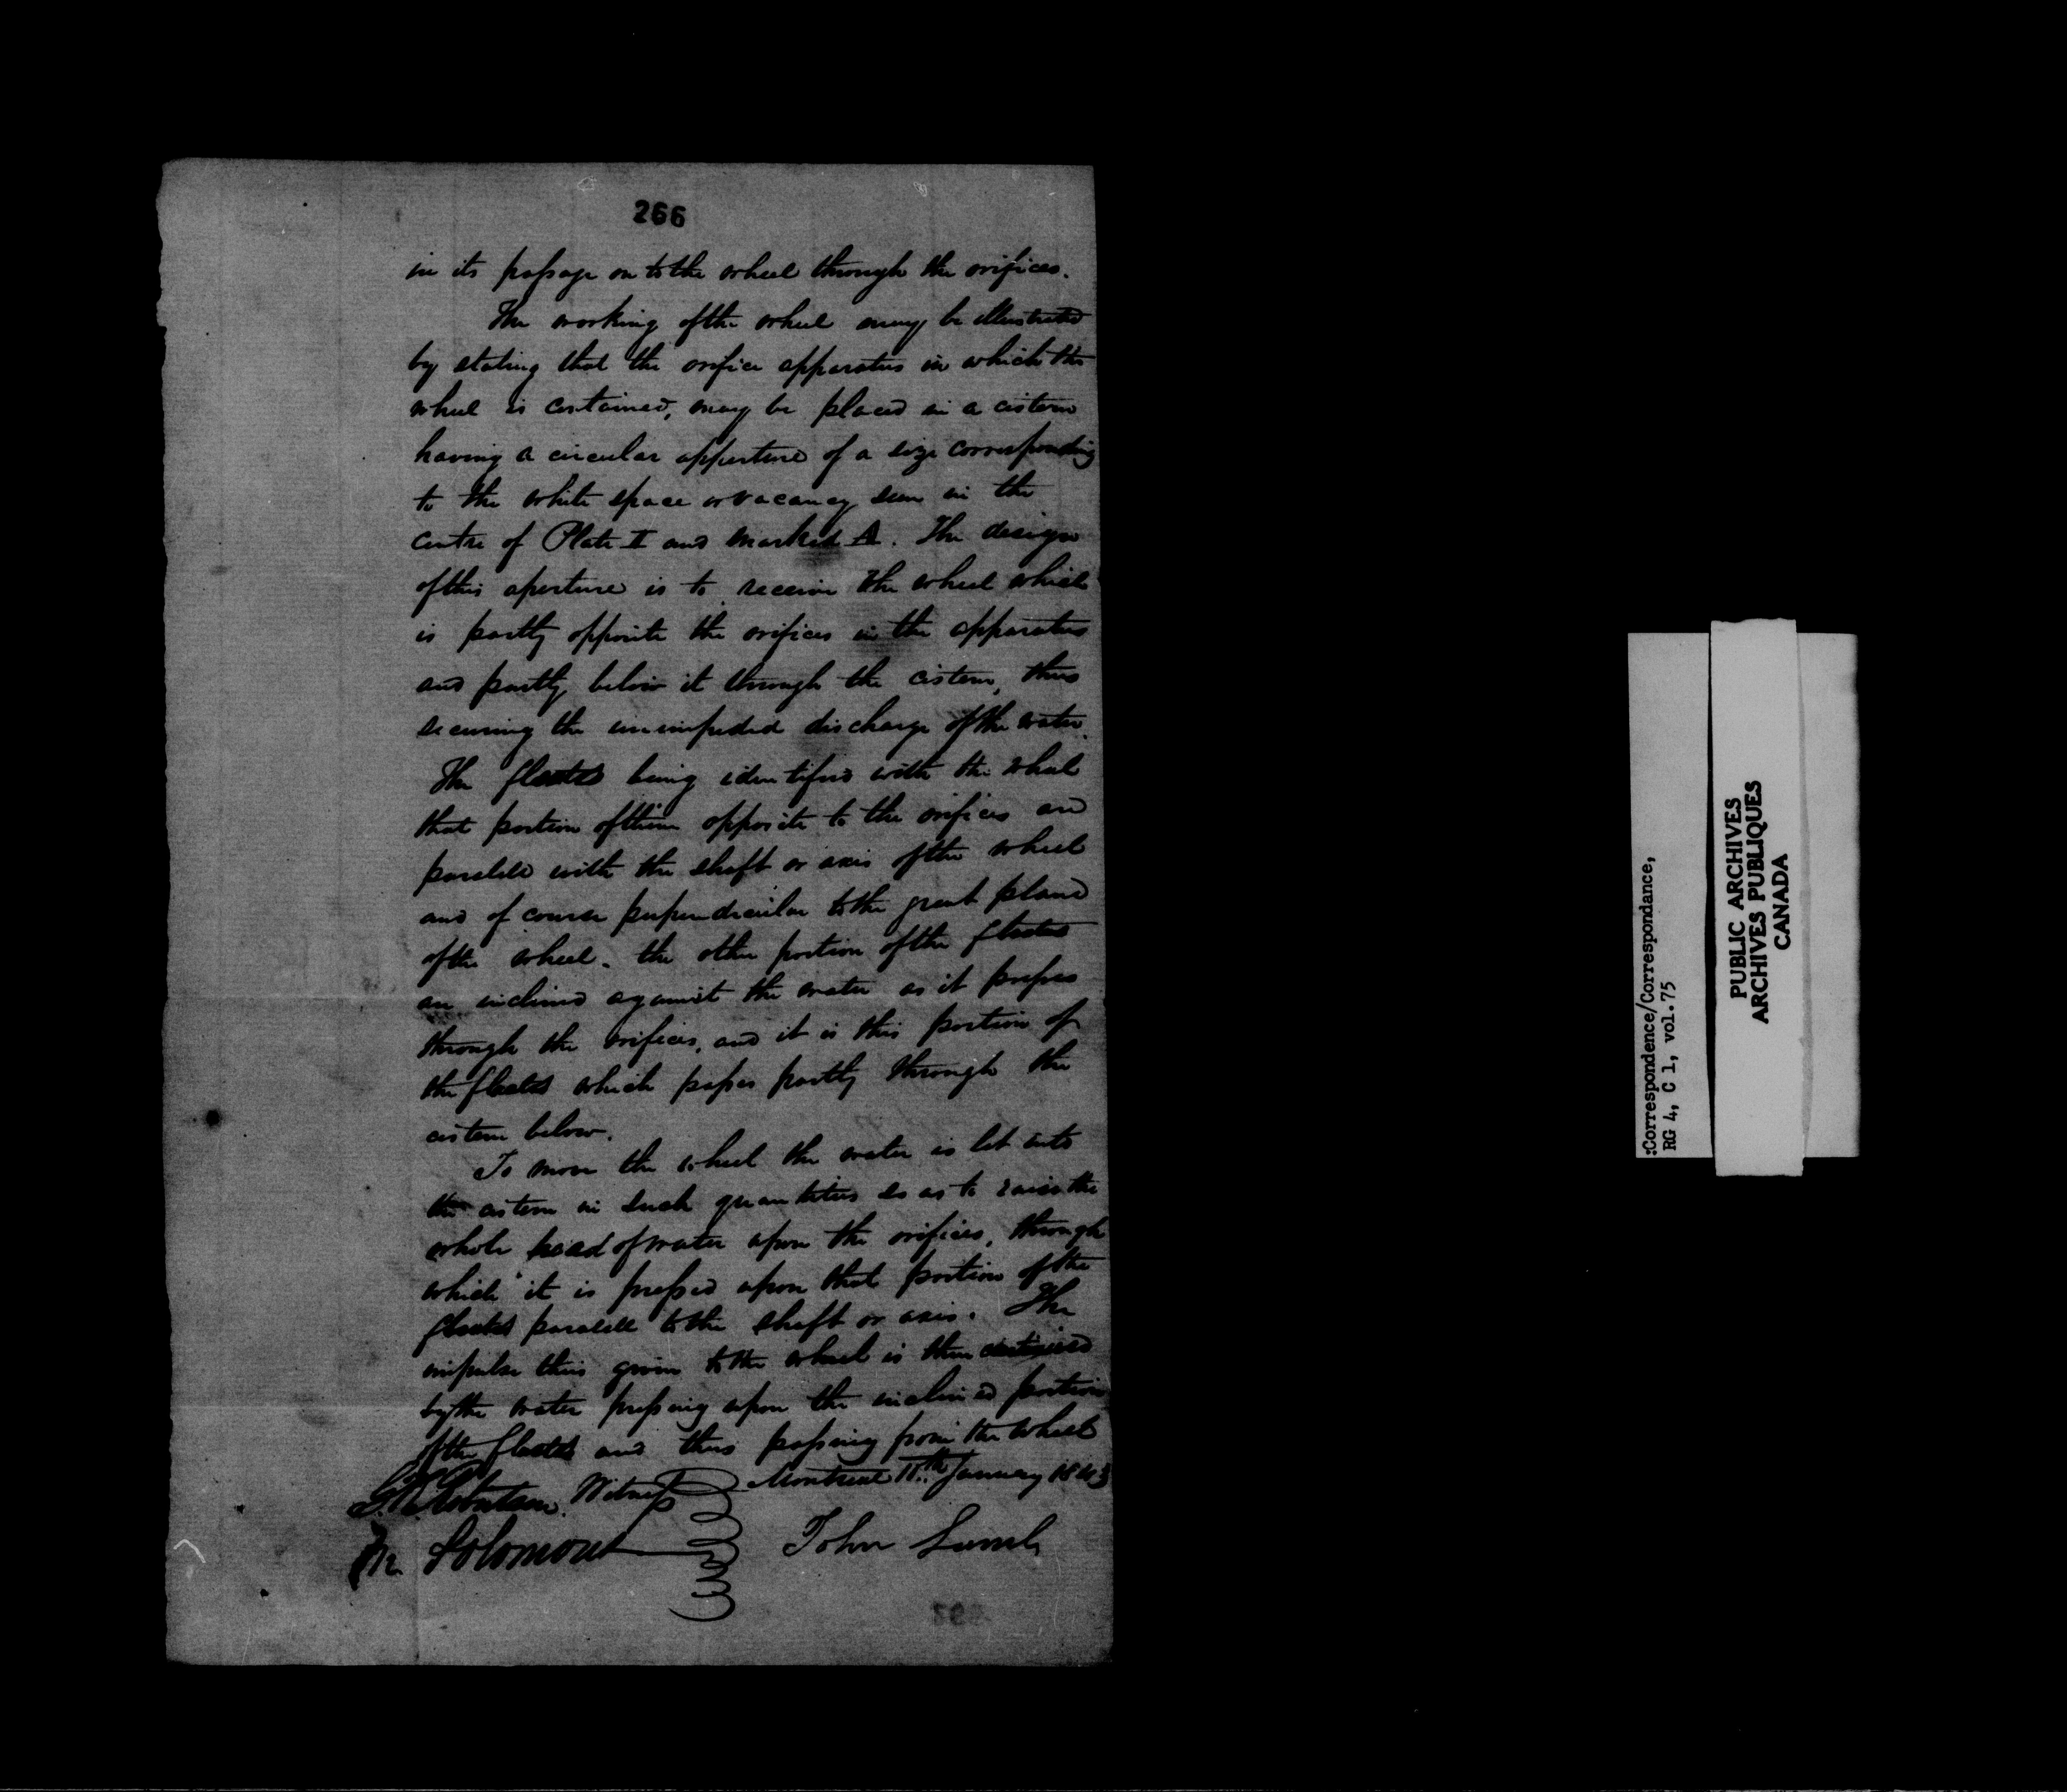 266
in its passage on to the wheel through the orifices.
The working of the wheel may be illustrated
by stating that the orifice apparatus in which the
wheel is contained, may be placed in a cistern
having a circular apperture of a size corresponding
to the white space or vacancy seen in the
centre of Plate II and marked A. The design
of this aperture is to receive the wheel which
is partly opposite the orifices in the apparatus
and partly below it through the cistern, thus
securing the unimpeded discharge of the water.
The floats being identified with the wheel
that portion of them opposite to the orifices are
paralell with the shaft or axis of the wheel
and of course perpendicular to the great plane
of the wheel. the other portion of the floats
are inclined against the water as it passes
through the orifices, and it is this portion of
the floats which passes partly through the
cistern below.
To move the wheel the water is let into
the cistern in such quantities so as to raise the
whole head of water upon the orifices, through
which it is pressed upon that portion of the
floats paralell to the shaft or axis. The
impulse thus given to the wheel is then continued
by the water pressing upon the inclined portion
of the floats and thus passing from the wheel
Witness Montreal 11th January 1843
Solomon John
:Correspondence/Correspondance,
RG 4, C 1, vol.75
PUBLIC ARCHIVES
ARCHIVES PUBLIQUES
CANADA